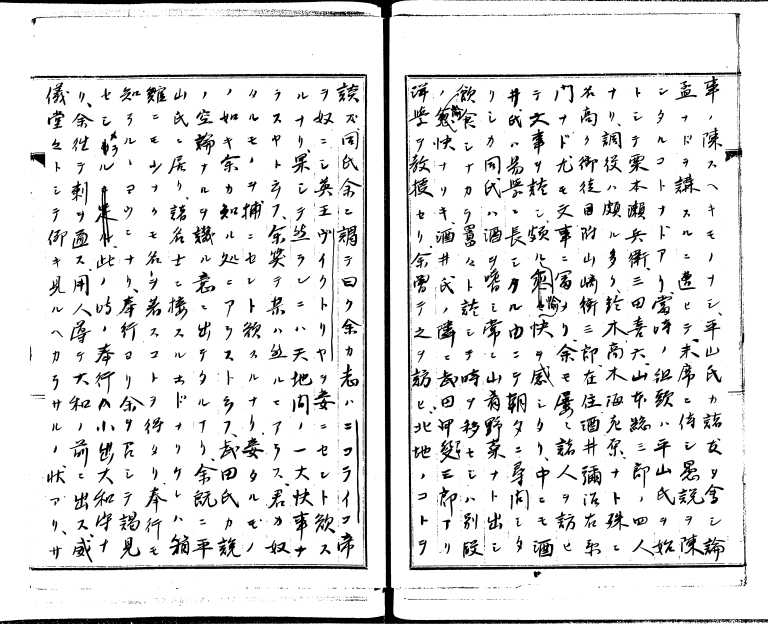 事ノ陳スヘキモノナシ、平山氏カ諸友ヲ會シ論
孟ナドヲ講スルニ遭ヒテ末席ニ侍シ愚説ヲ陳
シタルコトナドアリ當時ノ組頭ハ平山氏ヲ始
トシテ栗本瀬兵衛三田喜六山本 三郎ノ四人
ナリ、調役ハ頗ル多ク鈴木高木海老原ナト殊ニ
名高ク御徒目附山崎衛三郎在住酒井彌次右衛
門ナド尤モ文事ニ富メリ余モ屡 諸人ヲ訪ヒ
テ文事ヲ談シ頗ル愉快ヲ感シタリ、中ニモ酒
井氏ハ易學ニ長シタル由ニテ朝夕ニ尋問シタ
リシカ同氏ハ酒ヲ嗜ミ常ニ山肴野菜ナト出シ
飲食シナカラ 々ト談シテ時ヲ移セシハ別段
ノ愉快ナリキ酒井氏ノ隣ニ武田 三郎アリ
洋學ヲ教授セリ余曽テ之ヲ訪ヒ北地ノコトヲ
談ス同氏余ニ謂テ曰ク余カ志ハニコライ 帝
ヲ奴ニシ英王ヴイクトリヤヲ妾ニセント欲ス
ルナリ果シテ然ラシニハ天地間ノ一大快事ナ
ラスヤト云フ、余笑テ某ハ然ルニアラス君カ奴
タルモノヲ捕ニセント欲スルナリ妾タルモノ
ノ如キ余カ知ル処ニアラスト云フ武田氏カ説
ノ空論ナルヲ譏ル意ニ出テタルナリ余既ニ平
山氏ニ居リ諸名士ニ接スル ドナリケレハ箱
館ニモ少ナクモ名ヲ著スコトヲ得タリ奉行モ
知ラルヽヤウニナリ、奉行ヨリ余ヲ召シテ謁見
セシメラル 此ノ時ノ奉行ハ小出大和守ナ
リ、余住テ刺ヲ通ス、用人 テ大和ノ前ニ出ス威
儀堂々トシテ仰キ見ルヘカラサルノ状アリ、サ